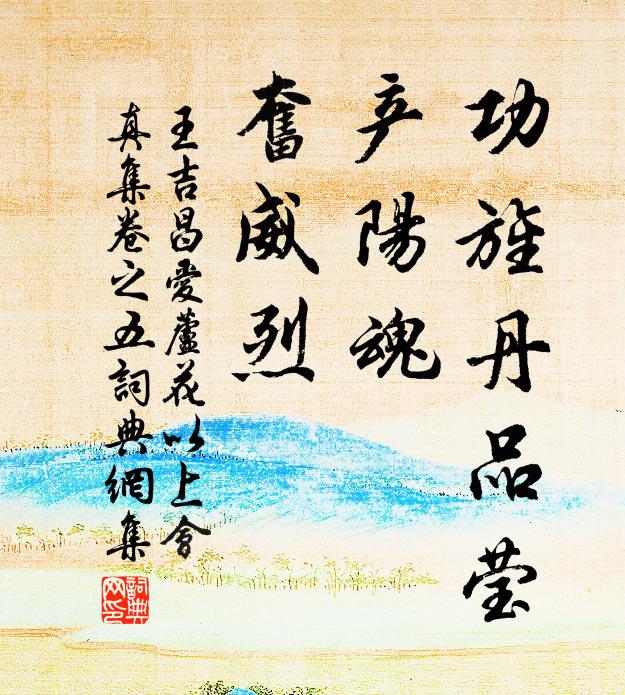 功旌丹品莹
产陽魂
奮威烈
王吉昌愛蘆花以上會
真集卷之五詞典網集
詞典
网印